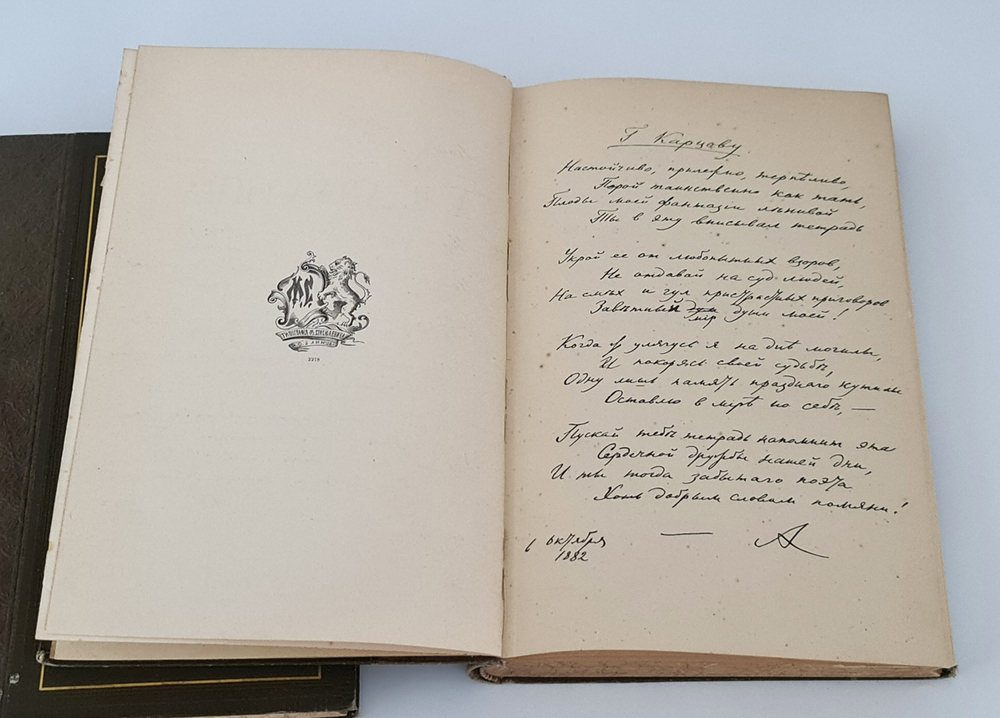 ТИПОГРАФІЯ М. СТАСЮЛЕВИЧА
2278
Г Карцаву
Настойчиво, прилежно, терпѣливо,
Порой таинственно как тать,
Плоды моей фантазіи лѣнивой
Ты в эту вписывал тетрадь
Укрой ее от любопытных взоров,
Не отдавай на суд людей,
На смѣх и гул пристрастных приговоров
Завѣтный мір души моей!
Когда улягусь я на днѣ могилы,
И покорясь своей судьбѣ,
Одну лишь память празднаго кутилы
Оставлю в мірѣ по себѣ, —
Пускай тебѣ тетрадь напомнит эта
Сердечной дружбы нашей дни,
И ты тогда забытаго поэта
Хоть добрым словом помяни!
1 октября — А
1882